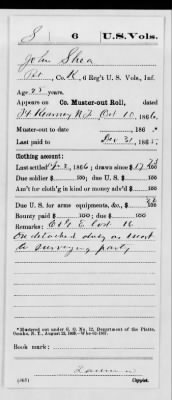 S | 6 | U.S. Vols.
John Shea
Pvt, Co. K, 6 Reg't U. S. Vols, Inf.
Age 25 years.
Appears on Co. Muster-out Roll, dated
Ft Kearney N.T. Oct 10, 1866.
Muster-out to date 186 .*
Last paid to Dec 31, 1865.
Clothing account:
Last settled 2, 1866; drawn since $ 100
Due soldier $ 100; due U. S. $ 100
Am't for cloth'g in kind or money adv'd $ 100
Due U. S. for arms equipments, &c., $ 100
Bounty paid $ 100; due $ 100
Remarks:
On detached duty as escort
to surveying party
*Mustered out under S. O. No. 12, Department of the Platte,
Omaha, N. T., August 23, 1866.
Book mark:
(361) Copyist.